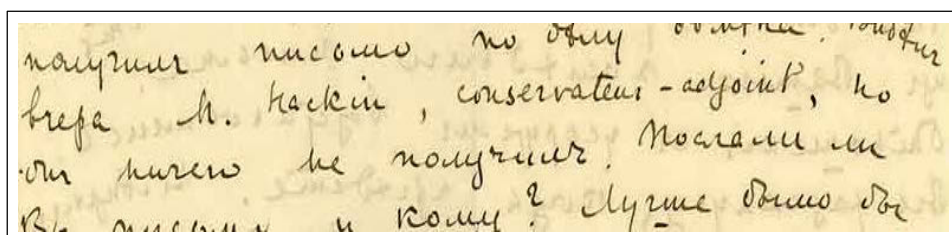 получилъ письмо по дѣлу обмѣна. Видѣлъ
вчера M. Hackin, conservateur-adjoint, но
онъ ничего не получилъ. Послали ли
Вы письмо и кому? Лучше было бы